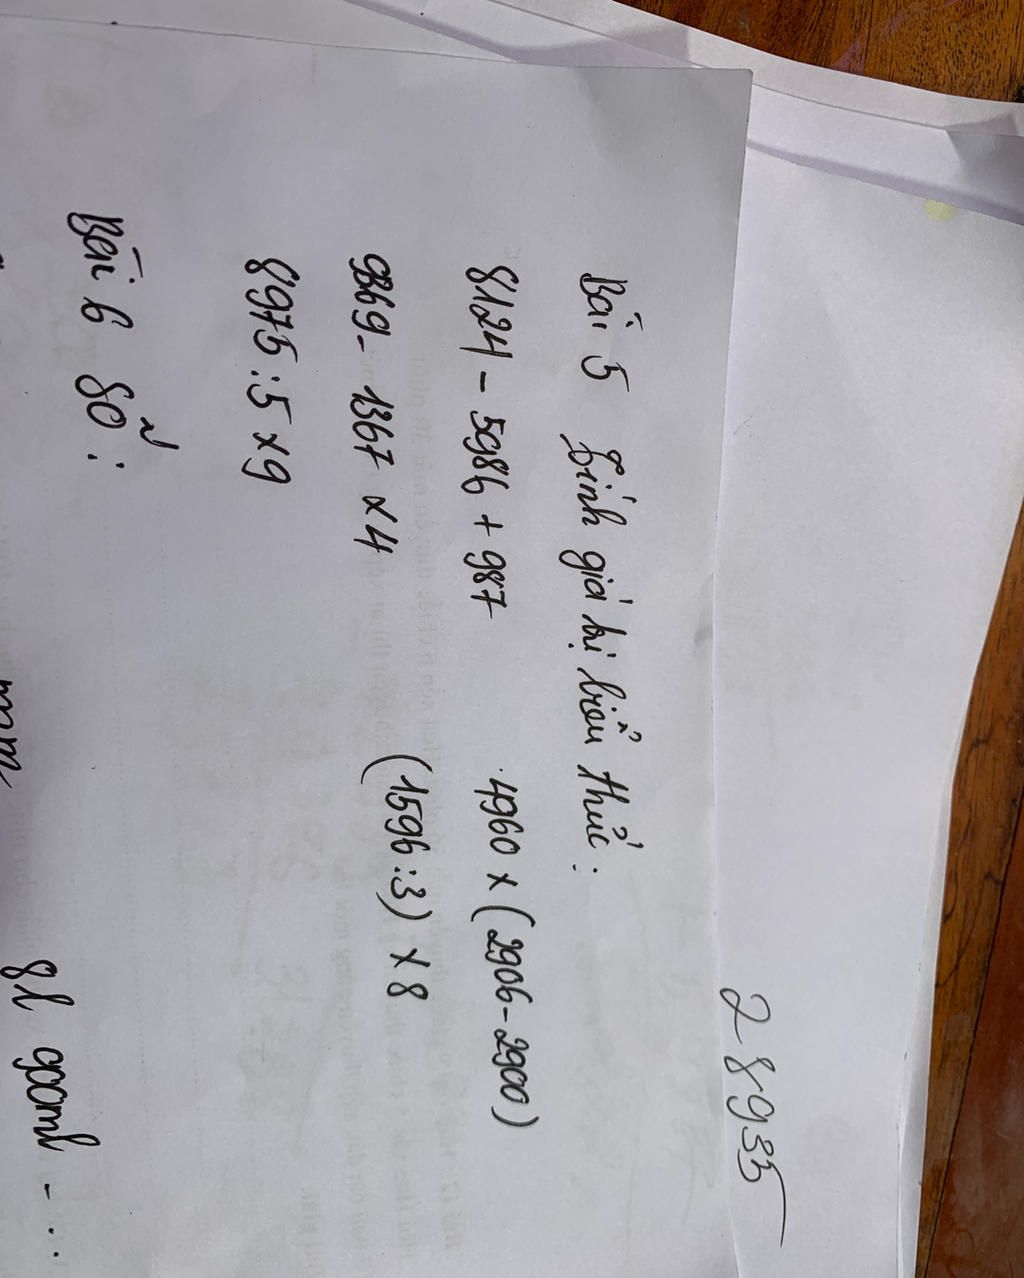 2 8935
Bài 5 Tính giá trị biểu thức:
8124 - 5986 + 987 4960 x (2906 - 2900)
9369 - 1367 x 4 (1596 : 3) x 8
8975 : 5 x 9
Bài 6 Số:
mm 9l 900ml - ..